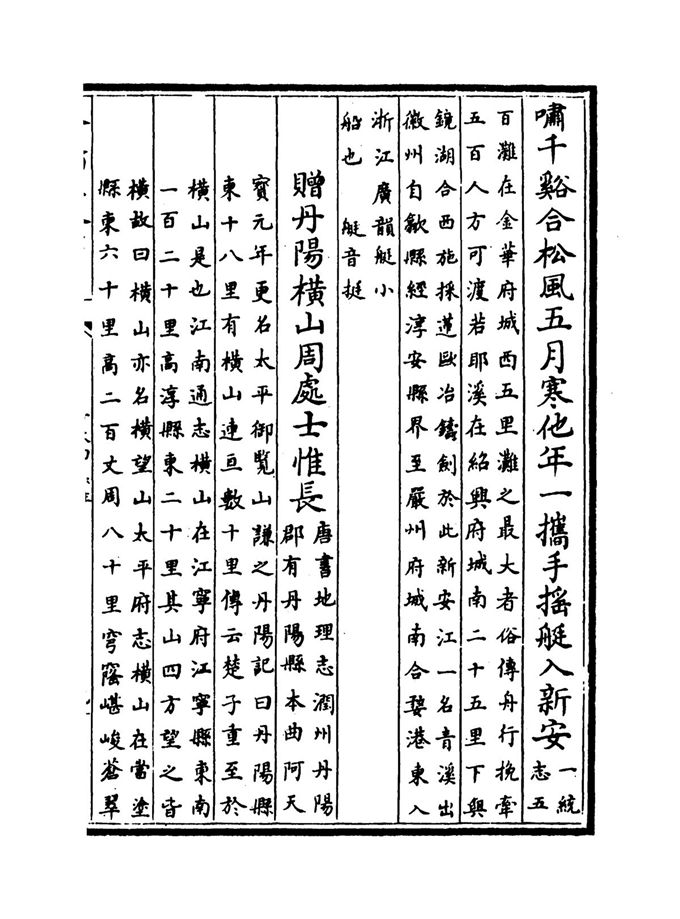 嘯千谿合松風五月寒他年一攜手搖艇入新安
一統
志五
百灘在金華府城西五里灘之最大者俗傳舟行挽牽
五百人方可渡若耶溪在紹興府城南二十五里下與
鏡湖合西施採蓮歐冶鑄劍於此新安江一名音溪出
徽州自歙縣經淳安縣界至嚴州府城南合婺港東入
浙江廣韻艇小
船也 艇音挺
贈丹陽橫山周處士惟長
唐書地理志潤州丹陽
郡有丹陽縣本曲阿天
寳元年更名太平御覧山謙之丹陽記曰丹陽縣
東十八里有橫山連亘數十里傳云楚子重至於
橫山是也江南通志橫山在江寧府江寧縣東南
一百二十里高淳縣東二十里其山四方望之皆
橫故曰橫山亦名橫望山太平府志橫山在當塗
縣東六十里高二百丈周八十里穹窿嵁峻蒼翠